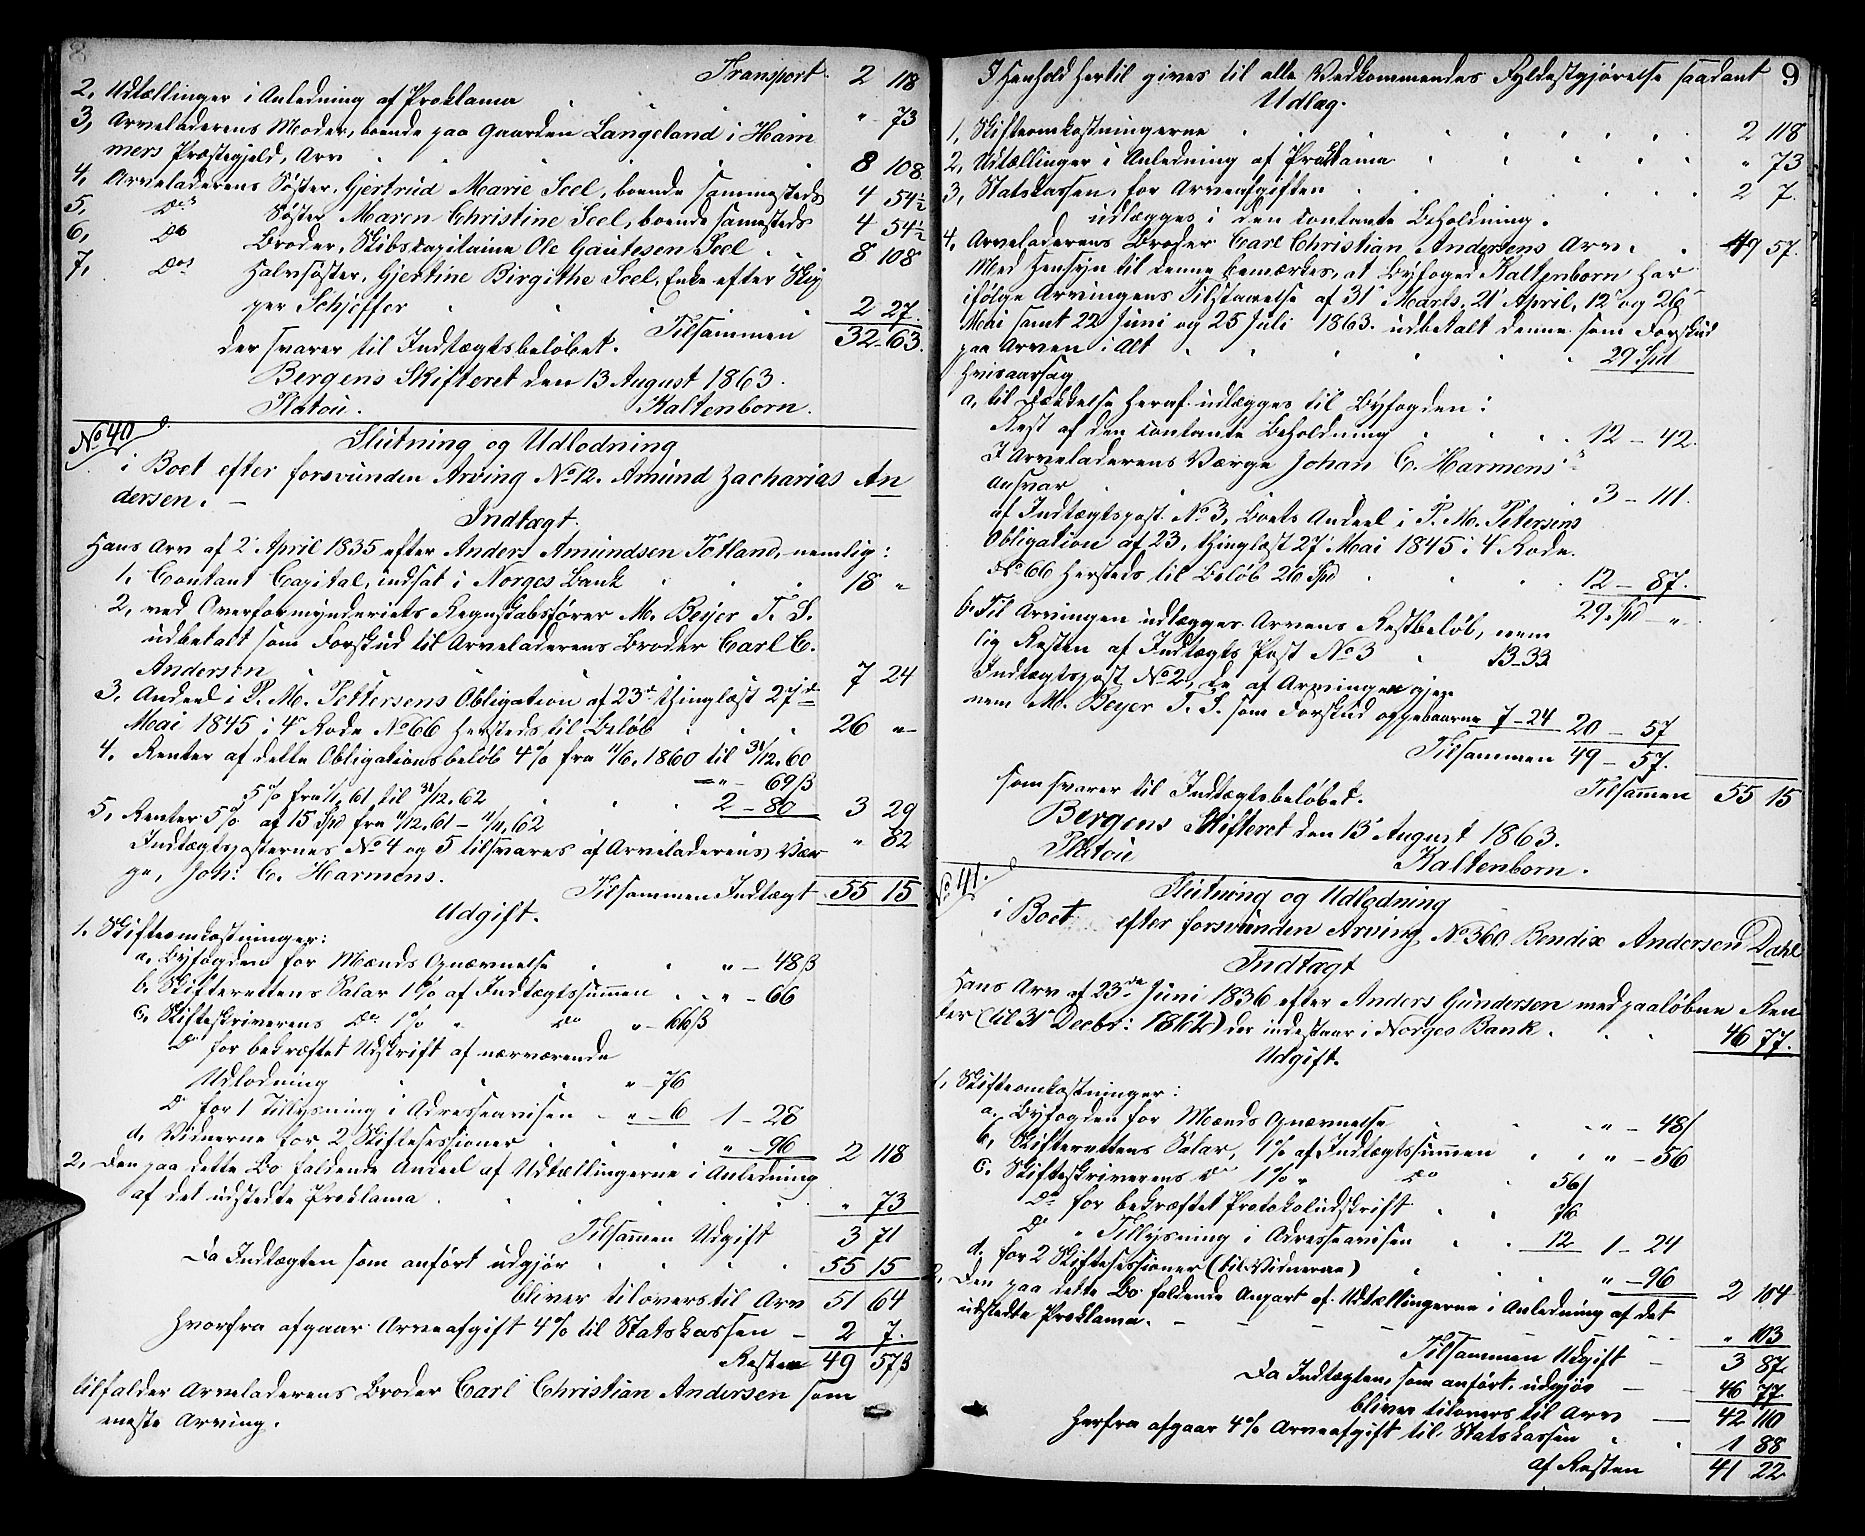 8
Transport 2 118
2, Udtællinger i Anledning af Proklama " 73
3, Arveladerens Moder, boende paa Gaarden Langeland i Ham
mers Præstegjeld, Arv 8 108
4. Arveladerens Søster, Gjertrud Marie Seel, boende sammesteds 4 54½
5, Do Søster Maren Christine Seel, boende samesteds 4 54½
6, Do Broder, Skibscapitaine Ole Gautesen Seel 8 108
7, Do Halvsøster, Gjertine Birgithe Seel, Enke efter Skip
per Scheffer 2 27.
Tilsammen 32 63.
der svarer til Indtægtsbeløbet.
Bergens Skifteret den 13 August 1863.
Platou. Kaltenborn.
No 40. Slutning og Udlodning
i Boet efter forsvunden Arving No 12. Amund Zacharias An
dersen. —
Indtægt.
Hans Arv af 2 April 1835 efter Anders Amundsen Totland, nemlig:
1. Contant Capital, indsat i Norges Bank 18 "
2, ved Overformynderiets Regnskabsfører M. Beyer T. S.
udbetalt som Forskud til Arveladerens Broder Carl C.
Andersen 7 24
3. Andeel i P. M. Pettersens Obligation af 23d thinglæst 27d
Mai 1845 i 4 Rode No 66 hersteds til Beløb 26 "
4. Renter af dette Obligationsbeløb 4% fra 11/6. 1860 til 31/12. 60
" 69ß
5% fra 1/1. 61 til 31/12. 62 2 - 80 3 29
5, Renter 5% af 15 Spd fra 11/12. 61 - 11/11. 62 " 82
Indtægtsposternes No 4 og 5 tilsvares af Arveladerens Vær
ge, Joh: C. Harmens.
Tilsammen Indtægt 55 15
Udgift.
1. Skifteomkostninger:
a. Byfogden for Mænds Opnævnelse " - 48ß
b. Skifterettens Salar 1% af Indtægtssummen " - 66
c. Skifteskriverens Do 1% " Do " - 66ß
Do for bekræftet Udskrift af nærværende
Udlodning " - 76
Do for 1 Tillysning i Adresseavisen " - 6 1 - 28
d, Vidnerne for 2 Skiftesessioner " - 96 2 118
2. Den paa dette Bo faldende Andeel af Udtællingerne i Anledning
af det udstedte Proklama " 73
Tilsammen Udgift 3 71
Da Indtægten som anført udgjør 55 15
bliver tilovers til Arv 51 64
Hvorfra afgaar Arveafgift 4% til Statskassen — 2 7.
Resten 49 57ß
tilfalder Arveladerens Broder Carl Christian Andersen som
neste Arving.
9
I Henhold hertil gives til alle Vedkommendes Fyldestgjørelse saadant
Udlæg.
1, Skifteomkostningerne 2 118
2, Udtællinger i Anledning af Proklama " 73
3, Statskassen, for Arveafgiften 2 7.
udlægges i den contante Beholdning.
4, Arveladerens Broder Carl Christian Andersens Arv 49 57.
Med Hensyn til denne bemærkes, at Byfoged Kaltenborn har
ifølge Arvingens Tilstaaelse af 31 Marts, 21 April, 12 og 26
Mai samt 22 Juni og 25 Juli 1863. udbetalt denne som Forskud
paa Arven i Alt 29 Spd
Hvisaarsag
a, til Dækkelse heraf udlægges til Byfogden:
Rest af den contante Beholdning 12 - 42.
I Arveladerens Værge Johan C. Harmens
Ansvar 3 - 111.
af Indtægtspost No 3, Boets Andeel i P. M. Petersens
Obligation af 23, thinglæst 27 Mai 1845 i 4 Rode
No 66 hersteds til Beløb 26 Spd 12 - 87.
29 Spd - "
b. Til Arvingen udlægges Arvens Restbeløb, nem
lig Resten af Indtægts Post No 3 13 - 33
Indtægtspost No 2, de af Arvingen gjen
nem M. Beyer T. S. som Forskud oppebaarne 7 - 24 20 - 57
Tilsammen 49 - 57.
Tilsammen 55 15
som svarer til Indtægtsbeløbet.
Bergens Skifteret den 13 August 1863.
Platou Kaltenborn.
No 41. Slutning og Udlodning
i Boet efter forsvunden Arving No 360 Bendix Andersen Dahl
Indtægt
Hans Arv af 23de Juni 1836 efter Anders Gundersen med paaløbne Ren
ter (til 31 Decbr: 1862) der indestaar i Norges Bank. 46 77.
Udgift.
1, Skifteomkostninger:
a. Byfogden for Mænds Opnævnelse " - 48ß
b, Skifterettens Salar, 1% af Indtægtssummen " - 56
c. Skifteskriverens Do 1% " Do 56ß
Do for bekræftet Protokoludskrift 76
Do " Tillysning i Adresseavisen 12 1 - 24
d, for 2 Skiftesessioner (til Vidnerne) " - 96 2 104
2, Den paa dette Bo faldende Anpart af Udtællingerne i Anledning af det
udstedte Proklama. " 103
Tilsammen Udgift — 3 87
Da Indtægten, som anført, udgjør — 46 77.
bliver tilovers til Arv — 42 110
Herfra afgaar 4% Arveafgift til Statskassen 1 88
af Resten 41 22